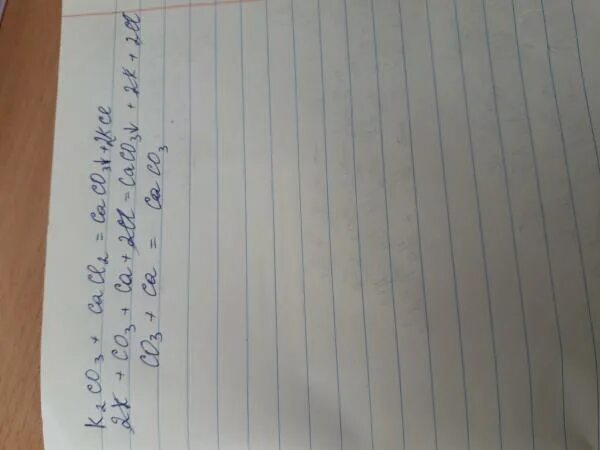 K₂CO₃ + CaCl₂ = CaCO₃↓ + 2KCl
2K + CO₃ + Ca + 2Cl = CaCO₃↓ + 2K + 2Cl
CO₃ + Ca = CaCO₃